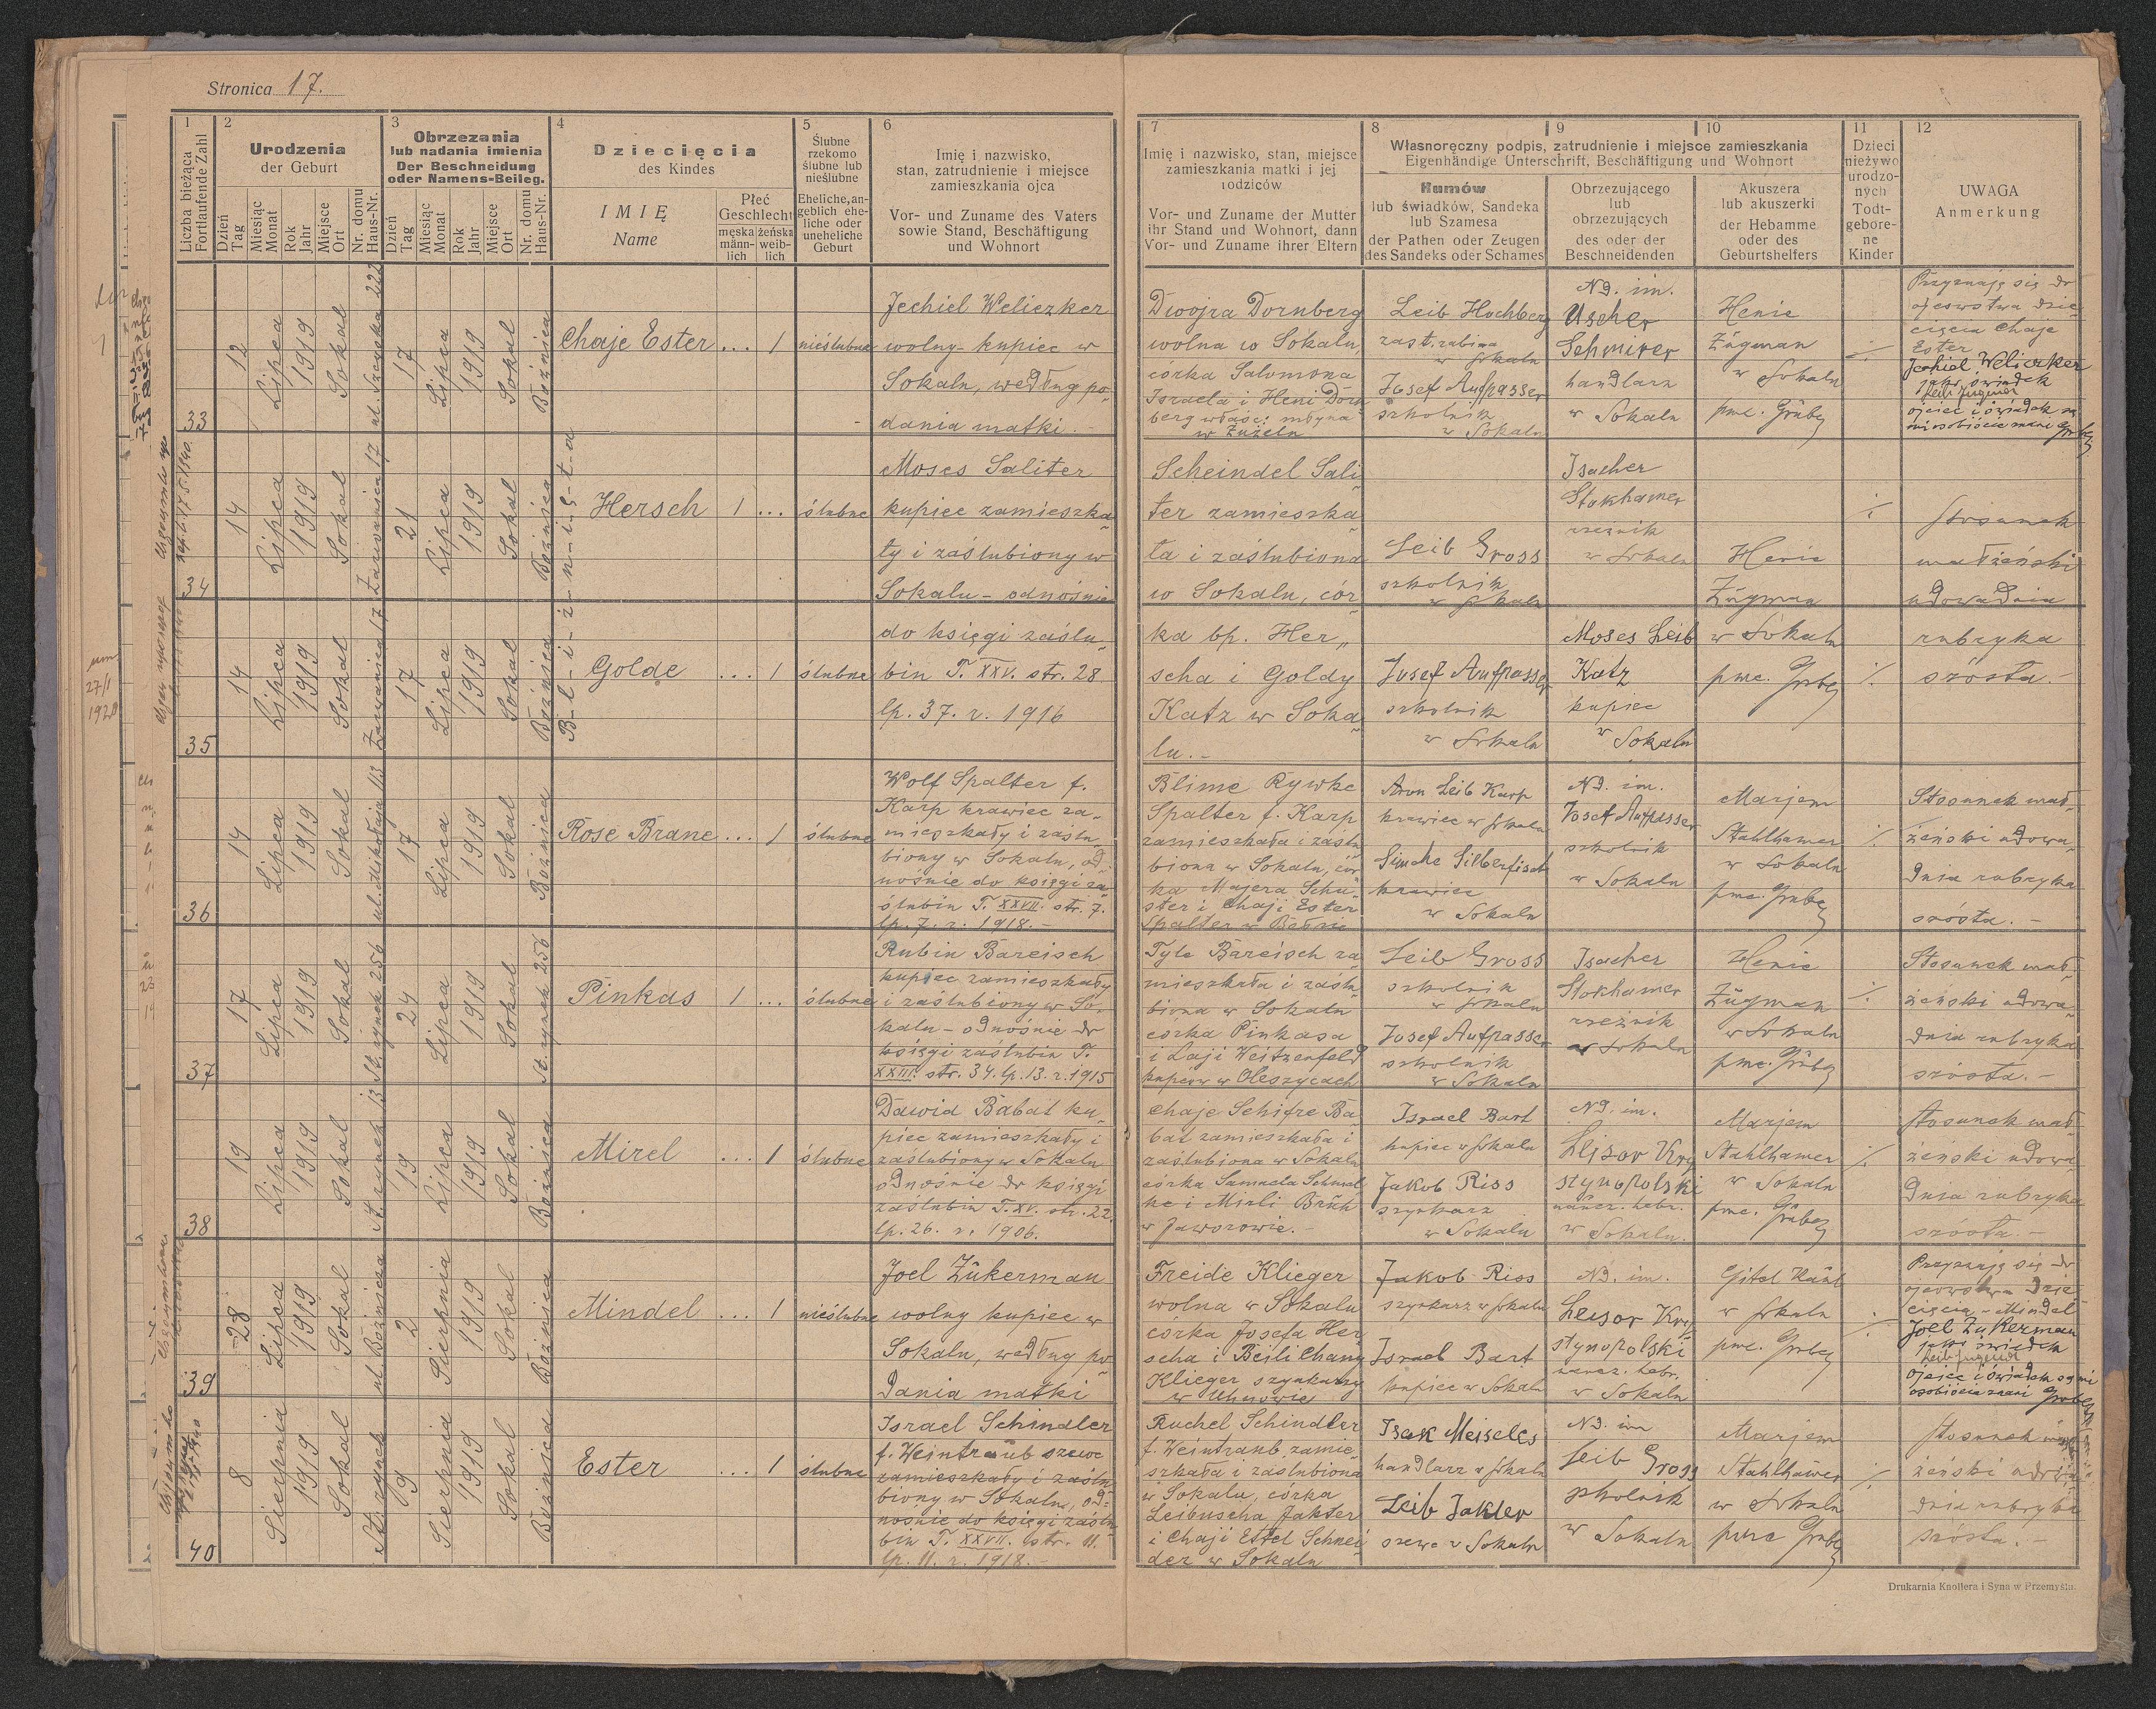 Stronica 17.
1
Liczba bieżąca
Fortlaufende Zahl
2
Urodzenia
der Geburt
Dzień
Tag
Miesiąc
Monat
Rok
Jahr
Miejsce
Ort
Nr. domu
Haus-Nr.
3
Obrzezania
lub nadania imienia
Der Beschneidung
oder Namens-Beileg.
Dzień
Tag
Miesiąc
Monat
Rok
Jahr
Miejsce
Ort
Nr. domu
Haus-Nr.
4
Dziecięcia
des Kindes
IMIĘ
Name
Płeć
Geschlecht
męska
männ-
lich
żeńska
weib-
lich
5
Ślubne
rzekomo
ślubne lub
nieślubne
Eheliche, an-
geblich ehe-
liche oder
uneheliche
Geburt
6
Imię i nazwisko,
stan, zatrudnienie i miejsce
zamieszkania ojca
Vor- und Zuname des Vaters
sowie Stand, Beschäftigung
und Wohnort
7
Imię i nazwisko, stan, miejsce
zamieszkania matki i jej
rodziców
Vor- und Zuname der Mutter
ihr Stand und Wohnort, dann
Vor- und Zuname ihrer Eltern
8
9
10
Własnoręczny podpis, zatrudnienie i miejsce zamieszkania
Eigenhändige Unterschrift, Beschäftigung und Wohnort
Kumów
lub świadków, Sandeka
lub Szamesa
der Pathen oder Zeugen
des Sandeks oder Schames
Obrzezującego
lub
obrzezujących
des oder der
Beschneidenden
Akuszera
lub akuszerki
der Hebamme
oder des
Geburtshelfers
11
Dzieci
nieżywo
urodzo-
nych
Todt-
gebore-
ne
Kinder
12
UWAGA
Anmerkung
33
12
Lipca
1919
Sokal
222
17
Lipca
1919
Sokal
Bożnica
Chaje Ester ... 1
nieślubne
Jechiel Weliczker
wolny - kupiec w
Sokalu, według po„
dania matki. -
Dwojra Dornberg
wolna w Sokalu,
córka Salomona
Israela i Heni Dorn
berg właśc. młyna
w Żużelu
Leib Hochberg
zast. rabina
w Sokalu
Josef Aufpasser
szkolnik
w Sokalu
ND. im.
Uscher
Schmirer
handlarz
w Sokalu
Henie
Zügman
w Sokalu
pmc. Grubej
Przyznaję się do
ojcowstwa dzie„
cięcia Chaje
Ester
Jechiel Weliczker
jako świadek
Leib Jugend
ojciec i świadek są
mi osobiście znani Grubej
34
14
Lipca
1919
Sokal
Zarwanica 17
21
Lipca
1919
Sokal
Bożnica
B-l-i-ź-n-i-ę-t-a
Hersch 1 ...
ślubne
Moses Saliter
kupiec zamieszka„
ły i zaślubiony w
Sokalu - odnośnie
do księgi zaślu„
bin T. XXV. str. 28
lp. 37. r. 1916
Scheindel Sali„
ter zamieszka„
ła i zaślubiona
w Sokalu, cór„
ka bp. Her„
scha i Goldy
Katz w Soka„
lu. -
Leib Gross
szkolnik
w Sokalu
Isacher
Stokhamer
rzeźnik
w Sokalu
Henie
Zügman
w Sokalu
pmc. Grubej
Stosunek
małżeński
udowadnia
rubryka
szósta. -
35
14
Lipca
1919
Sokal
Zarwanica 17
17
Lipca
1919
Sokal
Bożnica
Golde ... 1
ślubne
Josef Aufpasser
szkolnik
w Sokalu
Moses Leib
Katz
kupiec
w Sokalu
36
14
Lipca
1919
Sokal
ul. Mikołaja 113
17
Lipca
1919
Sokal
Bożnica
Rose Brane ... 1
ślubne
Wolf Spalter f.
Karp krawiec za-
mieszkały i zaślu„
biony w Sokalu, od„
nośnie do księgi za„
ślubin T. XXVII. str. 7.
lp. 7. r. 1918. -
Blime Rywke
Spalter f. Karp
zamieszkała i zaślu„
biona w Sokalu, cór„
ka Majera Schu„
ster i Chaji Ester
Spalter w Bełzie
Aron Leib Karp
krawiec w Sokalu
Simche Silberfisch
krawiec
w Sokalu
ND. im.
Josef Aufpasser
szkolnik
w Sokalu
Marjem
Stahlhamer
w Sokalu
pmc. Grubej
Stosunek mał„
żeński udowa„
dnia rubryka
szósta. -
37
17
Lipca
1919
Sokal
St. rynek 256
24
Lipca
1919
Sokal
St. rynek 256
Pinkas 1 ...
ślubne
Rubin Bareisch
kupiec zamieszkały
i zaślubiony w So„
kalu - odnośnie do
księgi zaślubin T.
XXIII. str. 34. lp. 13. r. 1915
Tyle Bareisch za„
mieszkała i zaślu„
biona w Sokalu
córka Pinkasa
i Laji Weitzenfeld
kupców w Oleszycach
Leib Gross
szkolnik
w Sokalu
Josef Aufpasser
szkolnik
w Sokalu
Isacher
Stokhamer
rzeźnik
w Sokalu
Henie
Zügman
w Sokalu
pmc. Grubej
Stosunek mał„
żeński udowa„
dnia rubryka
szósta. -
38
19
Lipca
1919
Sokal
St. rynek 13
19
Lipca
1919
Sokal
Bożnica
Mirel ... 1
ślubne
Dawid Babat ku„
piec zamieszkały i
zaślubiony w Sokalu
odnośnie do księgi
zaślubin T. XV. str. 22.
lp. 26. r. 1906.
Chaje Schifre Ba„
bat zamieszkała i
zaślubiona w Sokalu
córka Samuela Schmel„
ke i Mirli Brük
w Jaworowie. -
Israel Bart
kupiec w Sokalu
Jakob Riss
szynkarz
w Sokalu
ND. im.
Leisor Kry
stynopolski
naucz. hebr.
w Sokalu.
Marjem
Stahlhamer
w Sokalu
pmc. Grubej
Stosunek mał„
żeński udowa„
dnia rubryka
szósta. -
39
28
Lipca
1919
Sokal
ul. Bożnicza
2
Sierpnia
1919
Sokal
Bożnica
Mindel ... 1
nieślubne
Joel Zükerman
wolny kupiec w
Sokalu, według po„
dania matki
Freide Klieger
wolna w Sokalu
córka Josefa Her„
scha i Beili Chany
Klieger szynkarzy
w Uhnowie
Jakob Riss
szynkarz w Sokalu
Israel Bart
kupiec w Sokalu
ND. im.
Leisor Kry
stynopolski
naucz. hebr.
w Sokalu
Gitel
w Sokalu
pmc. Grubej
Przyznaję się do
ojcowstwa dzie„
cięcia - Mindel
Joel Zukerman
jako świadek
Leib Jugend
ojciec i świadek są mi
osobiście znani Grubej
40
8
Sierpnia
1919
Sokal
St. rynek
9
Sierpnia
1919
Sokal
Bożnica
Ester ... 1
ślubne
Israel Schindler
f. Weintraub szewc
zamieszkały i zaślu„
biony w Sokalu, od=
nośnie do księgi zaślu„
bin T. XXVII. str. 11.
lp. 11. r. 1918. -
Ruchel Schindler
f. Weintraub zamie„
szkała i zaślubiona
w Sokalu, córka
Leibuscha Jakter
i Chaji Ettel Schnei„
der w Sokalu
Isak Meiseles
handlarz w Sokalu
Leib Jakter
szewc w Sokalu
ND. im
Leib Gross
szkolnik
w Sokalu
Marjem
Stahlhamer
w Sokalu
pmc Grubej
Stosunek
żeński udowa„
dnia rubryka
szósta. -
27/1
1928
Drukarnia Knollera i Syna w Przemyślu.